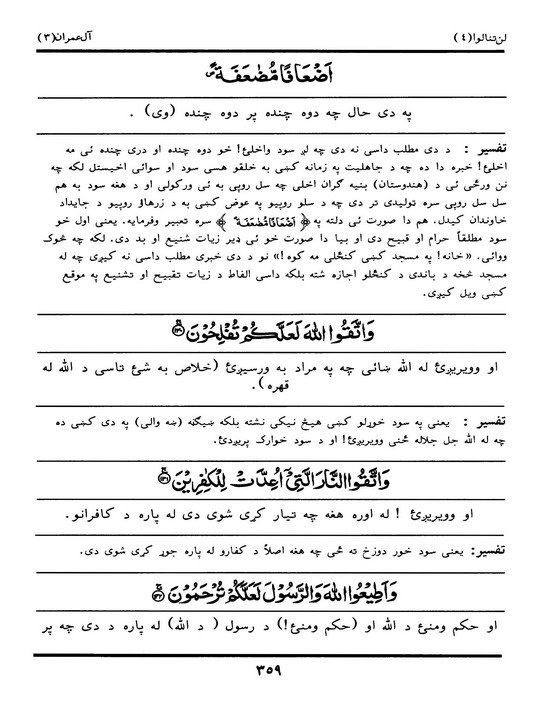 لن تنالوا (٤) آل عمران (٣)
اَضْعَافًا مُّضٰعَفَةً ۖ
په دی حال چه دوه چنده پر دوه چنده (وی) .
تفسیر : د دی مطلب داسی نه دی چه لږ سود واخلئ! خو دوه چنده او دری چنده ئی مه
اخلئ! خبره دا ده چه د جاهلیت په زمانه کښی به خلقو هسی سود او سوائی اخیستل لکه چه
نن ورځی ئی د (هندوستان) بنیه گران اخلی چه سل روپی به ئی ورکولی او د هغه سود به هم
سل سل روپی سره تولیدی تر دی چه د سلو روپیو په عوض کښی به د زرهاؤ روپیو د جایداد
خاوندان کیدل. هم دا صورت ئی دلته په ﴿ اَضْعَافًا مُّضٰعَفَةً ﴾ سره تعبیر وفرمایه. یعنی اول خو
سود مطلقاً حرام او قبیح دی او بیا دا صورت خو ئی ډیر زیات شنیع او بد دی. لکه چه څوک
ووائی. «خانه! په مسجد کښی کنځلی مه کوه!» نو د دی خبری مطلب داسی نه کیږی چه له
مسجد څخه د باندی د کنځلو اجازه شته بلکه داسی الفاظ د زیات تقبیح او تشنیع په موقع
کښی ویل کیږی.
وَاتَّقُوا اللّٰهَ لَعَلَّكُمْ تُفْلِحُوْنَ ﴿١٣٠﴾
او وویریږئ له الله ښائی چه په مراد به ورسیږئ (خلاص به شئ تاسی د الله له
قهره).
تفسیر : یعنی په سود خوړلو کښی هیڅ نیکی نشته بلکه ښیګڼه (ښه والی) په دی کښی ده
چه له الله جل جلاله ځنی وویریږئ! او د سود خوارک پریږدی.
وَاتَّقُوا النَّارَ الَّتِيْٓ اُعِدَّتْ لِلْكٰفِرِيْنَ ﴿١٣١﴾
او وویریږئ ! له اوره هغه چه تیار کړی شوی دی له پاره د کافرانو.
تفسیر: یعنی سود خور دوزخ ته ځی چه هغه اصلاً د کفارو له پاره جوړ کړی شوی دی.
وَاَطِيْعُوا اللّٰهَ وَالرَّسُوْلَ لَعَلَّكُمْ تُرْحَمُوْنَ ﴿١٣٢﴾
او حکم ومنئ د الله او (حکم ومنئ!) د رسول ( د الله) له پاره د دی چه پر
٣٥٩